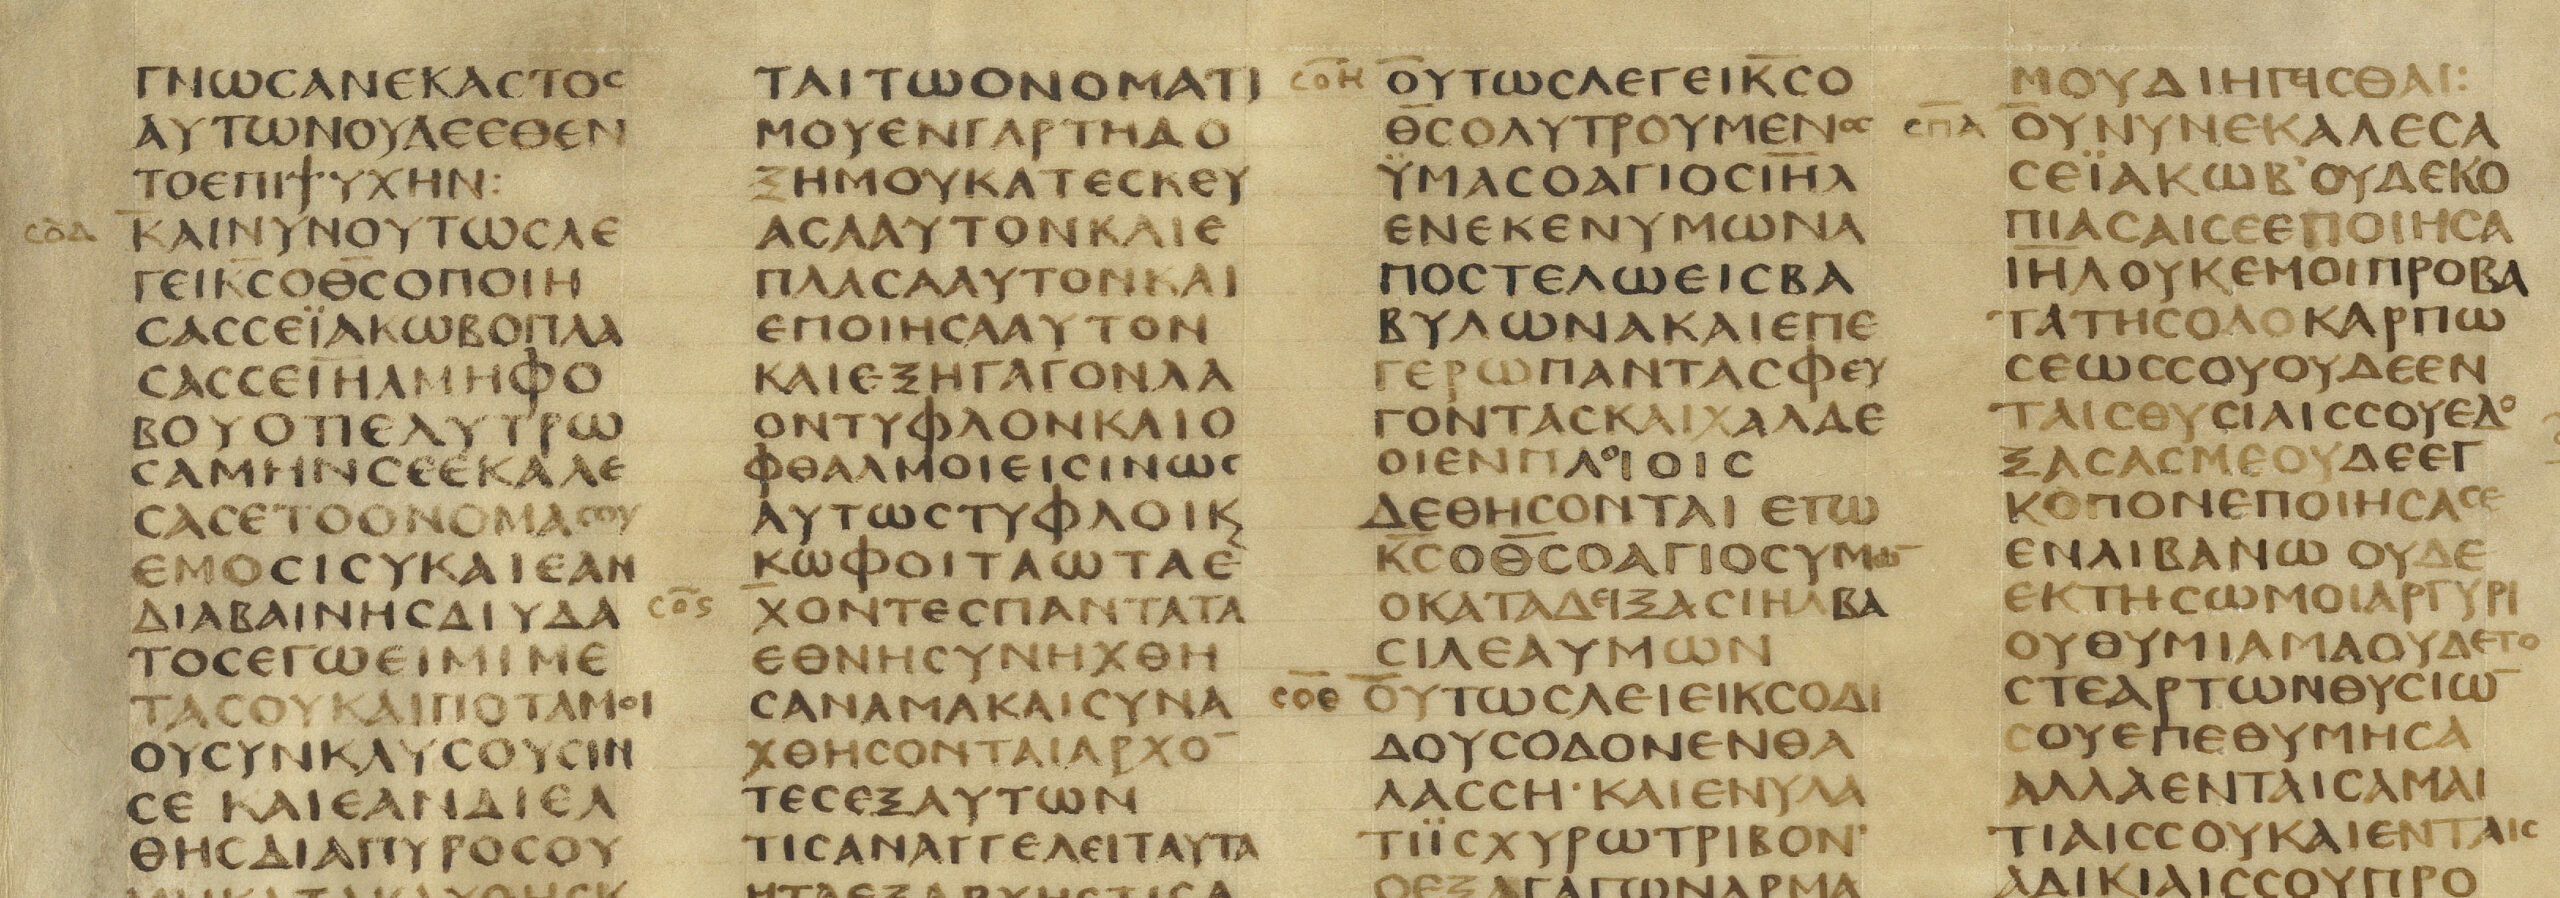 ΓΝΩϹΑΝΕΚΑϹΤΟϹ
ΑΥΤΩΝΟΥΔΕΕΘΕΝ
ΤΟΕΠΙΨΥΧΗΝ:
ϹΟΔ ΚΑΙΝΥΝΟΥΤΩϹΛΕ
ΓΕΙΚ̅Ϲ̅ΟΘ̅Ϲ̅ΟΠΟΙΗ
ϹΑϹϹΕΪΑΚΩΒΟΠΛΑ
ϹΑϹϹΕΙ̅Η̅Λ̅ΜΗΦΟ
ΒΟΥΟΤΙΕΛΥΤΡΩ
ϹΑΜΗΝϹΕΕΚΑΛΕ
ϹΑϹΕΤΟΟΝΟΜΑϹΟΥ
ΕΜΟϹΙϹΥΚΑΙΕΑΝ
ΔΙΑΒΑΙΝΗϹΔΙΥΔΑ
ΤΟϹΕΓΩΕΙΜΙΜΕ
ΤΑϹΟΥΚΑΙΠΟΤΑΜΟΙ
ΟΥϹΥΝΚΛΥϹΟΥϹΙΝ
ϹΕ ΚΑΙΕΑΝΔΙΕΛ
ΘΗϹΔΙΑΠΥΡΟϹΟΥ
ΤΑΙΤΩΟΝΟΜΑΤΙ
ΜΟΥΕΝΓΑΡΤΗΔΟ
ΞΗΜΟΥΚΑΤΕϹΚΕΥ
ΑϹΑΑΥΤΟΝΚΑΙΕ
ΠΛΑϹΑΑΥΤΟΝΚΑΙ
ΕΠΟΙΗϹΑΑΥΤΟΝ
ΚΑΙΕΞΗΓΑΓΟΝΛΑ
ΟΝΤΥΦΛΟΝΚΑΙΟ
ΦΘΑΛΜΟΙΕΙϹΙΝΩϹ
ΑΥΤΩϹΤΥΦΛΟΙΚ
ΚΩΦΟΙΤΑΩΤΑΕ
ϹΟϚ ΧΟΝΤΕϹΠΑΝΤΑΤΑ
ΕΘΝΗϹΥΝΗΧΘΗ
ϹΑΝΑΜΑΚΑΙϹΥΝΑ
ΧΘΗϹΟΝΤΑΙΑΡΧΟ̅
ΤΕϹΕΞΑΥΤΩΝ
ΤΙϹΑΝΑΓΓΕΛΕΙΤΑΥΤΑ
ΗΤΑΕΞΑΡΧΗϹΤΙϹΑ
ϹΟΗ ΟΥΤΩϹΛΕΓΕΙΚ̅Ϲ̅Ο
Θ̅Ϲ̅ΟΛΥΤΡΟΥΜΕΝΟϹ
ΫΜΑϹΟΑΓΙΟϹΙ̅Η̅Λ̅
ΕΝΕΚΕΝΥΜΩΝΑ
ΠΟϹΤΕΛΩΕΙϹΒΑ
ΒΥΛΩΝΑΚΑΙΕΠΕ
ΓΕΡΩΠΑΝΤΑϹΦΕΥ
ΓΟΝΤΑϹΚΑΙΧΑΛΔΕ
ΟΙΕΝΠΛΟΙΟΙϹ
ΔΕΘΗϹΟΝΤΑΙ ΕΓΩ
Κ̅Ϲ̅ΟΘ̅Ϲ̅ΟΑΓΙΟϹΥΜΩ̅
ΟΚΑΤΑΔΕΙΞΑϹΙΗΛΒΑ
ϹΙΛΕΑΥΜΩΝ
ϹΟΘ ΟΥΤΩϹΛΕΓΕΙΚϹΟΔΙ
ΔΟΥϹΟΔΟΝΕΝΘΑ
ΛΑϹϹΗ·ΚΑΙΕΝΥΔΑ
ΤΙΪϹΧΥΡΩΤΡΙΒΟΝ·
ΟΕΞΑΓΑΓΩΝΑΡΜΑ
ΜΟΥΔΙΗΓΕΙϹΘΑΙ:
ϹΠΑ ΟΥΝΥΝΕΚΑΛΕϹΑ
ϹΕΪΑΚΩΒ·ΟΥΔΕΚΟ
ΠΙΑϹΑΙϹΕΕΠΟΙΗϹΑ
Ι̅Η̅Λ̅ΟΥΚΕΜΟΙΠΡΟΒΑ
ΤΑΤΗϹΟΛΟΚΑΡΠΩ
ϹΕΩϹϹΟΥΟΥΔΕΕΝ
ΤΑΙϹΘΥϹΙΑΙϹϹΟΥΕΔΟ
ΞΑϹΑϹΜΕΟΥΔΕΕΓ
ΚΟΠΟΝΕΠΟΙΗϹΑϹΕ
ΕΝΛΙΒΑΝΩ ΟΥΔΕ
ΕΚΤΗϹΩΜΟΙΑΡΓΥΡΙ
ΟΥΘΥΜΙΑΜΑΟΥΔΕΤΟ
ϹΤΕΑΡΤΩΝΘΥϹΙΩ̅
ϹΟΥΕΠΕΘΥΜΗϹΑ
ΑΛΛΑΕΝΤΑΙϹΑΜΑΡ
ΤΙΑΙϹϹΟΥΚΑΙΕΝΤΑΙϹ
ΑΔΙΚΙΑΙϹϹΟΥΠΡΟ